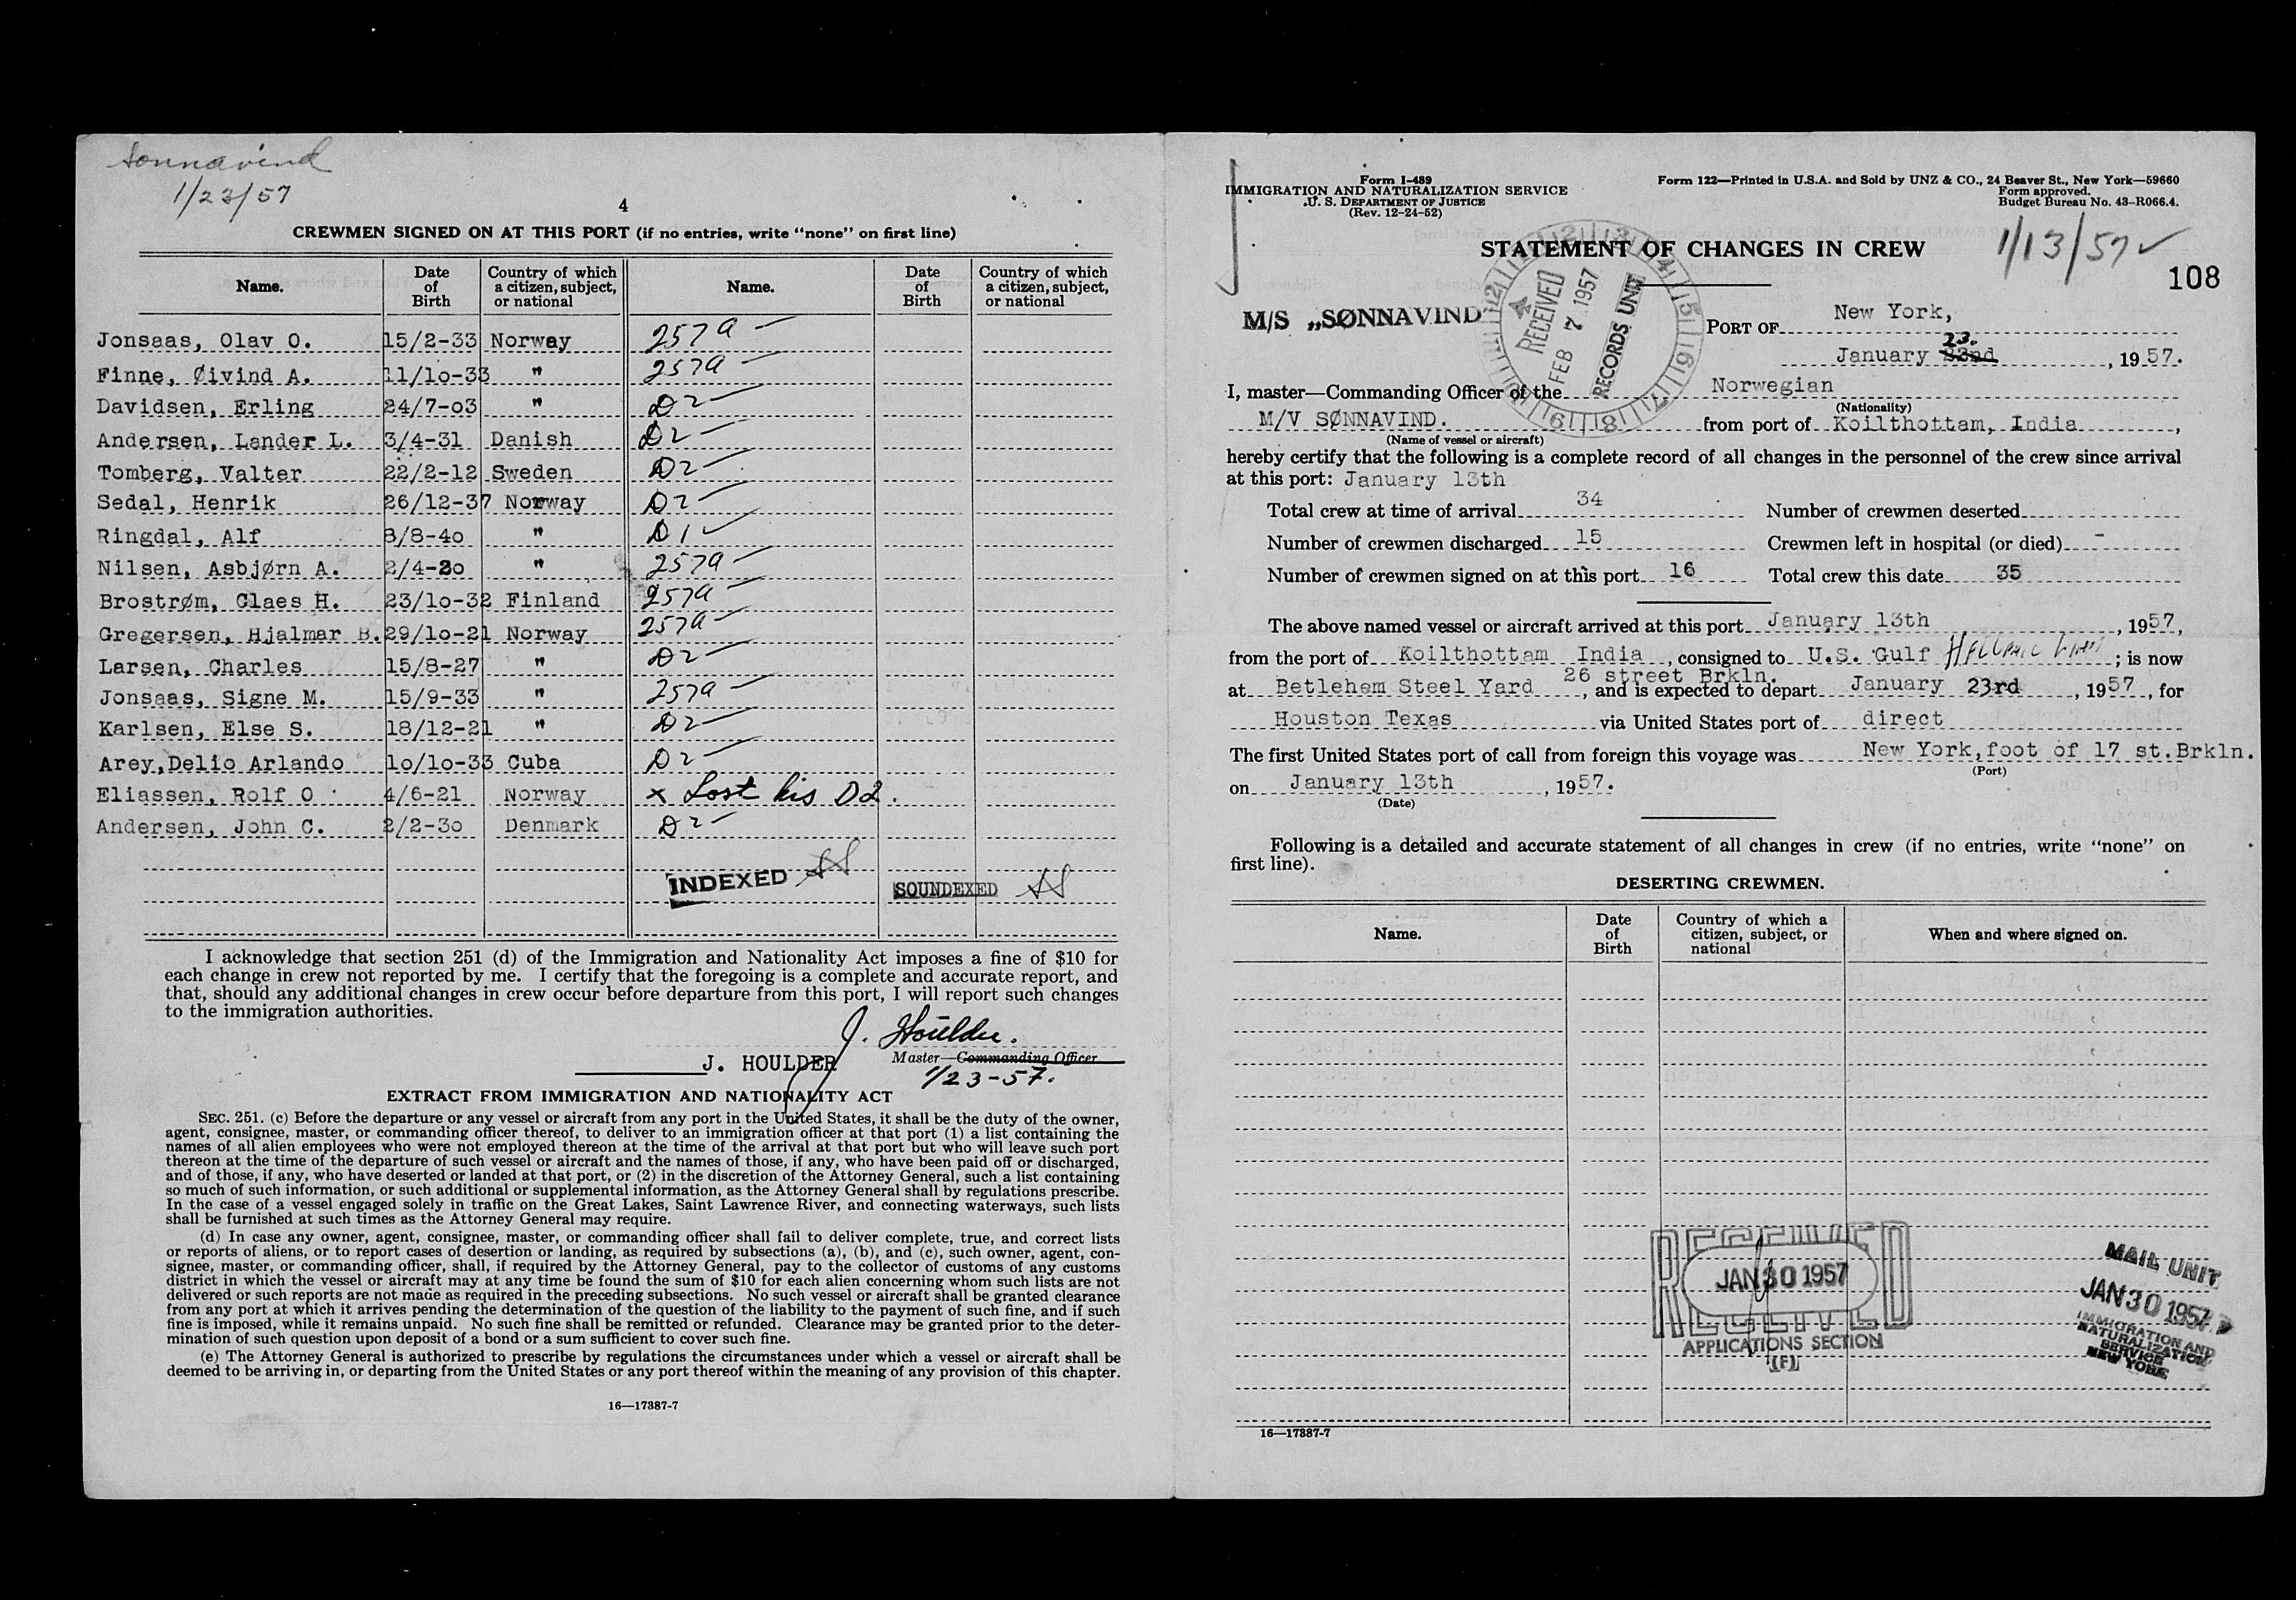 Sonnavind
1/23/57
4
CREWMEN SIGNED ON AT THIS PORT (if no entries, write "none" on first line)
Name. Date of Birth Country of which a citizen, subject, or national Name. Date of Birth Country of which a citizen, subject, or national
Jonsaas, Olav O. 15/2-33 Norway 257a —
Finne, Øivind A. 11/1o-33 " 257a —
Davidsen, Erling 24/7-o3 " D2 —
Andersen, Lander L. 3/4-31 Danish D2 —
Tomberg, Valter 22/2-12 Sweden D2 —
Sedal, Henrik 26/12-37 Norway D2 —
Ringdal, Alf 8/8-4o " D1 ✓
Nilsen, Asbjørn A. 2/4-2o " 257a —
Brostrøm, Claes H. 23/1o-32 Finland 257a —
Gregersen, Hjalmar B. 29/1o-21 Norway 257a —
Larsen, Charles 15/8-27 " D2 —
Jonsaas, Signe M. 15/9-33 " 257a —
Karlsen, Else S. 18/12-21 " D2 —
Arey,Delio Arlando 1o/1o-33 Cuba D2 —
Eliassen, Rolf O 4/6-21 Norway x Lost his D2.
Andersen, John C. 2/2-3o Denmark D2 —
INDEXED
SOUNDEXED
I acknowledge that section 251 (d) of the Immigration and Nationality Act imposes a fine of $10 for
each change in crew not reported by me. I certify that the foregoing is a complete and accurate report, and
that, should any additional changes in crew occur before departure from this port, I will report such changes
to the immigration authorities.
J. Houlder.
J. HOULDER Master—Commanding Officer
1/23-57.
EXTRACT FROM IMMIGRATION AND NATIONALITY ACT
SEC. 251. (c) Before the departure or any vessel or aircraft from any port in the United States, it shall be the duty of the owner,
agent, consignee, master, or commanding officer thereof, to deliver to an immigration officer at that port (1) a list containing the
names of all alien employees who were not employed thereon at the time of the arrival at that port but who will leave such port
thereon at the time of the departure of such vessel or aircraft and the names of those, if any, who have been paid off or discharged,
and of those, if any, who have deserted or landed at that port, or (2) in the discretion of the Attorney General, such a list containing
so much of such information, or such additional or supplemental information, as the Attorney General shall by regulations prescribe.
In the case of a vessel engaged solely in traffic on the Great Lakes, Saint Lawrence River, and connecting waterways, such lists
shall be furnished at such times as the Attorney General may require.
(d) In case any owner, agent, consignee, master, or commanding officer shall fail to deliver complete, true, and correct lists
or reports of aliens, or to report cases of desertion or landing, as required by subsections (a), (b), and (c), such owner, agent, con-
signee, master, or commanding officer, shall, if required by the Attorney General, pay to the collector of customs of any customs
district in which the vessel or aircraft may at any time be found the sum of $10 for each alien concerning whom such lists are not
delivered or such reports are not made as required in the preceding subsections. No such vessel or aircraft shall be granted clearance
from any port at which it arrives pending the determination of the question of the liability to the payment of such fine, and if such
fine is imposed, while it remains unpaid. No such fine shall be remitted or refunded. Clearance may be granted prior to the deter-
mination of such question upon deposit of a bond or a sum sufficient to cover such fine.
(e) The Attorney General is authorized to prescribe by regulations the circumstances under which a vessel or aircraft shall be
deemed to be arriving in, or departing from the United States or any port thereof within the meaning of any provision of this chapter.
16—17387-7
Form I-489
IMMIGRATION AND NATURALIZATION SERVICE
U. S. DEPARTMENT OF JUSTICE
(Rev. 12-24-52)
Form 122—Printed in U.S.A. and Sold by UNZ & CO., 24 Beaver St., New York—59660
Form approved.
Budget Bureau No. 43-R066.4.
1/13/57 ✓
STATEMENT OF CHANGES IN CREW
108
RECEIVED
FEB 7 1957
RECORDS UNIT
M/S „SØNNAVIND"
PORT OF New York,
23.
January 22nd, 1957.
I, master—Commanding Officer of the Norwegian
(Nationality)
M/V SØNNAVIND. from port of Koilthottam, India,
(Name of vessel or aircraft)
hereby certify that the following is a complete record of all changes in the personnel of the crew since arrival
at this port: January 13th
Total crew at time of arrival 34 Number of crewmen deserted
Number of crewmen discharged 15 Crewmen left in hospital (or died) -
Number of crewmen signed on at this port 16 Total crew this date 35
The above named vessel or aircraft arrived at this port January 13th, 1957,
from the port of Koilthottam India, consigned to U.S. Gulf; is now
at Betlehem Steel Yard 26 street Brkln., and is expected to depart January 23rd, 1957, for
Houston Texas via United States port of direct
The first United States port of call from foreign this voyage was New York,foot of 17 st.Brkln.
(Port)
on January 13th, 1957.
(Date)
Following is a detailed and accurate statement of all changes in crew (if no entries, write "none" on
first line).
DESERTING CREWMEN.
Name. Date of Birth Country of which a citizen, subject, or national When and where signed on.
RECEIVED
JAN 30 1957
RECEIVED
APPLICATIONS SECTION
(F)
MAIL UNIT
JAN 30 1957
IMMIGRATION AND
NATURALIZATION
SERVICE
NEW YORK
16—17387-7